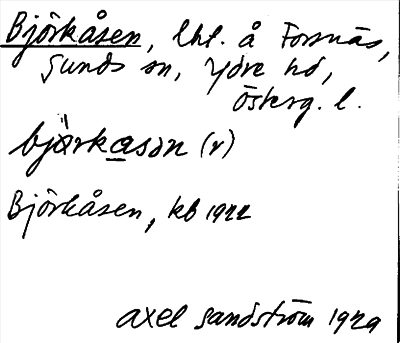 Björkåsen, lht. å Forsnäs,
Sunds sn, Ydre hd,
Österg. l.
björkasən (v)
Björkåsen, kb 1922
Axel Sandström 1929